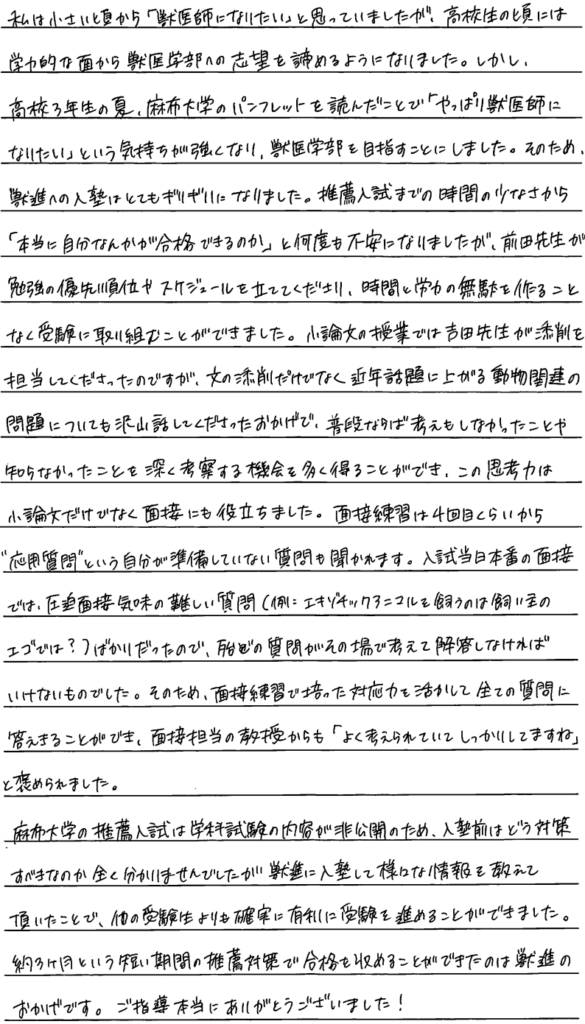 私は小さい頃から「獣医師になりたい」と思っていましたが、高校生の頃には
学力的な面から獣医学部への志望を諦めるようになりました。しかし、
高校3年生の夏、麻布大学のパンフレットを読んだことで「やっぱり獣医師に
なりたい」という気持ちが強くなり、獣医学部を目指すことにしました。そのため、
獣進への入塾はとてもギリギリになりました。推薦入試までの時間の少なさから
「本当に自分なんかが合格できるのか」と何度も不安になりましたが、前田先生が
勉強の優先順位やスケジュールを立ててくださり、時間と学力の無駄を作ること
なく受験に取り組むことができました。小論文の授業では吉田先生が添削を
担当してくださったのですが、文の添削だけでなく近年話題に上がる動物関連の
問題についても沢山話してくださったおかげで、普段ならば考えもしなかったことや
知らなかったことを深く考察する機会を多く得ることができ、この思考力は
小論文だけでなく面接にも役立ちました。面接練習は4回目くらいから
"応用質問"という自分が準備していない質問も聞かれます。入試当日本番の面接
では、圧迫面接気味の難しい質問(例:エキゾチックアニマルを飼うのは飼い主の
エゴでは?)ばかりだったので、殆どの質問がその場で考えて解答しなければ
いけないものでした。そのため、面接練習で培った対応力を活かして全ての質問に
答えきることができ、面接担当の教授からも「よく考えられていてしっかりしてますね」
と褒められました。
麻布大学の推薦入試は学科試験の内容が非公開のため、入塾前はどう対策
すべきなのか全く分かりませんでしたが獣進に入塾して様々な情報を教えて
頂いたことで、他の受験生よりも確実に有利に受験を進めることができました。
約3ヶ月という短い期間の推薦対策で合格を収めることができたのは獣進の
おかげです。ご指導本当にありがとうございました!